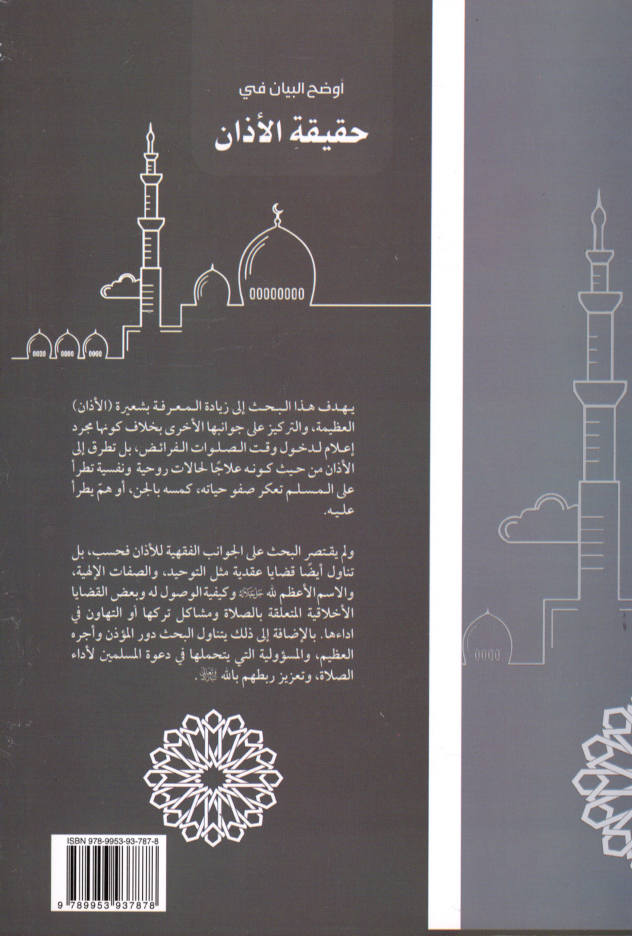 أوضح البيان في
حقيقة الأذان
يهدف هذا البحث إلى زيادة المعرفة بشعيرة (الأذان)
العظيمة، والتركيز على جوانبها الأخرى بخلاف كونها مجرد
إعلام لدخول وقت الصلوات الفرائض، بل تطرق إلى
الأذان من حيث كونه علاجًا لحالات روحية ونفسية تطرأ
على المسلم تعكر صفو حياته، كمسه بالجن، أو همّ يطرأ
عليه.
ولم يقتصر البحث على الجوانب الفقهية للأذان فحسب، بل
تناول أيضًا قضايا عقدية مثل التوحيد، والصفات الإلهية،
والاسم الأعظم لله ﷻ وكيفية الوصول له وبعض القضايا
الأخلاقية المتعلقة بالصلاة ومشاكل تركها أو التهاون في
اداءها. بالإضافة إلى ذلك يتناول البحث دور المؤذن وأجره
العظيم، والمسؤولية التي يتحملها في دعوة المسلمين لأداء
الصلاة، وتعزيز ربطهم بالله .
ISBN 978-9953-93-787-8
9 789953 937878